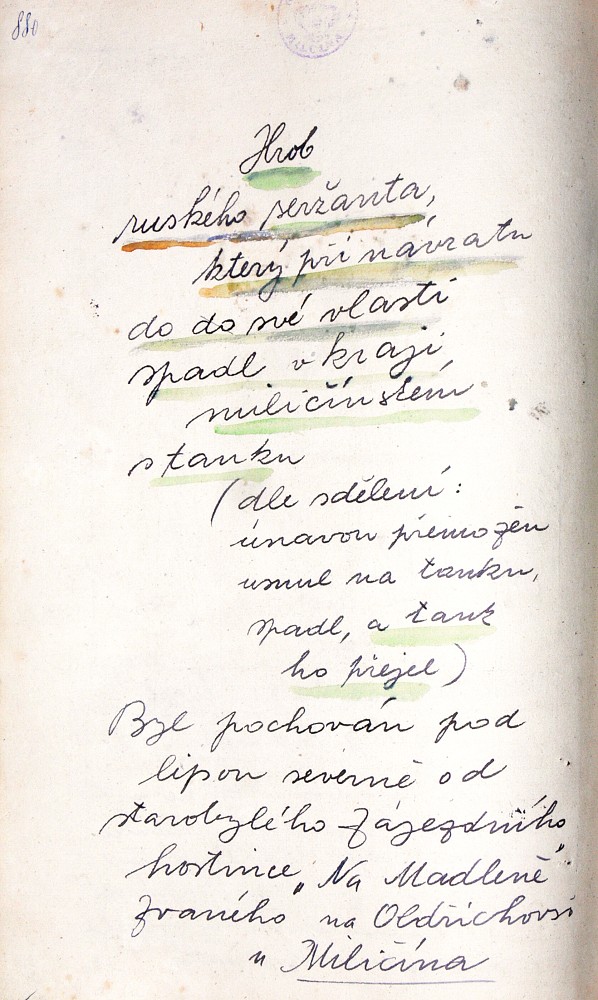 880
Hrob
ruského seržanta,
který při návratu
do do své vlasti
spadl v kraji
miličínském
s tanku
(dle sdělení:
únavou přemožen
usnul na tanku,
spadl, a tank
ho přejel)
Byl pochován pod
lipou severně od
starobylého zájezdního
hostince „Na Madleně"
zvaného na Oldřichovsi
u Miličína